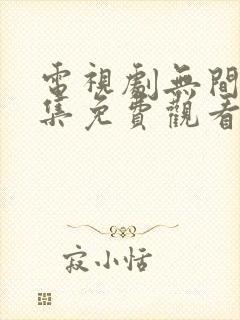 電視劇無間
集免費觀看
寂小恬